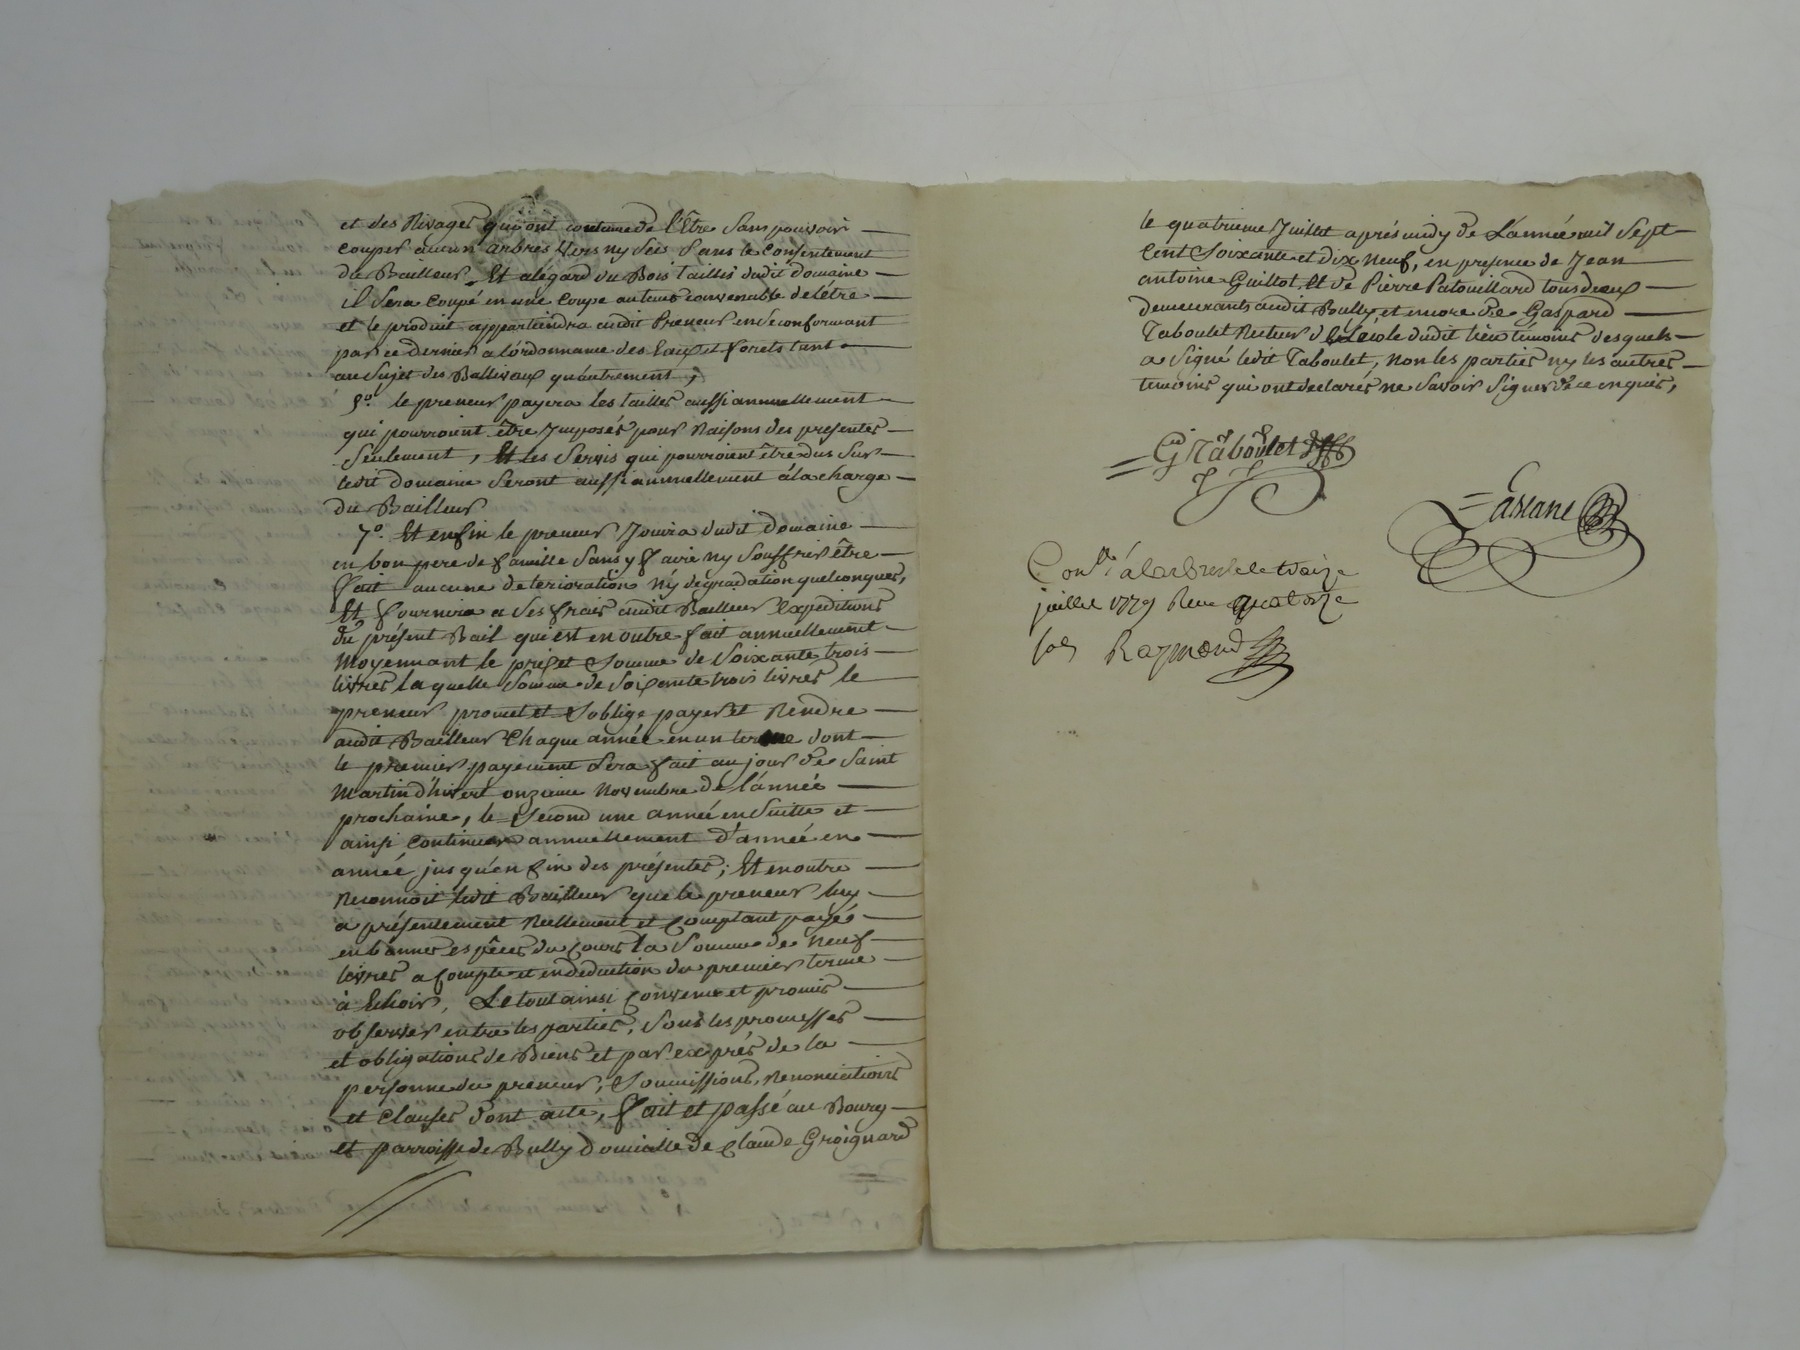 et des Rivages qui ont coutume de l'Être Sans pouvoir
couper aucun arbres Vers ny Secs Sans le Consentement
du Bailleur. Et alégard du Bois taillis dudit domaine
il Sera Coupé en une Coupe au tems convenable de létre
et le produit appartiendra audit Preneur en se conformant
par ce dernier a lórdonnance des Eaux et forets tant
au Sujet des Balliveaux qu'autrement,
5.o le preneur payera les tailles aussi annuellement
qui pourroient être Imposés pour Raisons des presentes
Seulement, Et les Servis qui pourroient être dus Sur
ledit domaine Seront aussi annuellement à la charge
du Bailleur
7.o Et enfin le preneur Jouira dudit domaine
en bon pere de famille Sans y faire ny Souffrir être
fait aucune deterioration Ny degradation quelconques,
Et fournira a Ses frais audit Bailleur Expeditions
du présent Bail qui est en outre fait annuellement
Moyennant le prix et Somme de Soixante trois
livres laquelle Somme de Soixante trois livres le
preneur promet et S'oblige payer et Rendre
audit Bailleur Chaque année en un terme dont
le premier payement Sera fait au jour de Saint
Martin d'hivert onzieme Novembre de l'année
prochaine, le Second une année en Suitte et
ainsi Continuer annuellement d'année en
année jusqu'en fin des présentes; Et en outre
Reconnoit ledit Bailleur que le preneur luy
a présentement Reellement et Comptant payés
en bonnes espêces du Cours la Somme de Neuf
livres a Compte et en deduction du premier terme
à Echoir, Le tout ainsi Convenu et promis
observer entre les parties, Sous les promesses
et obligations de Biens et par exprés de la
personne du preneur, Soumissions, Renonciations
et Clauses dont acte, fait et passé au Bourg
et parroisse de Bully domicille de Claude Groignard
le quatrieme Juillet aprés midy de L'année mil Sept
Cent Soixante et dix Neuf, en presence de Jean
antoine Guillot, Et de Pierre Patouillard tous deux
demeurants audit Bully, et encore de Gaspard
Taboulet Recteur d'Ecole dudit lieu témoins desquels
a Signé ledit Taboulet, Non les parties ny les autres
temoins qui ont declarés ne Savoir Signer de ce enquis,
G Taboulet
Lassane
Con.lé á Larbresle le treize
juillet 1779 Recu quatorze
sols Raymond